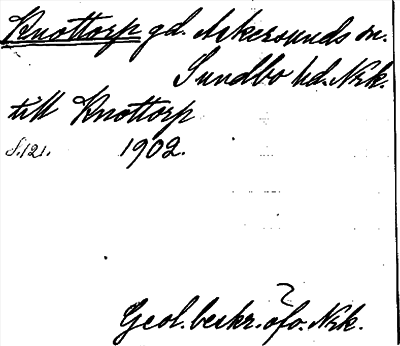 Knottorp gd. Askersunds sn.
Sundbo hd. Nrk.
till Knottorp
s. 121. 1902.
Geol. beskr. öfv. Nrk.